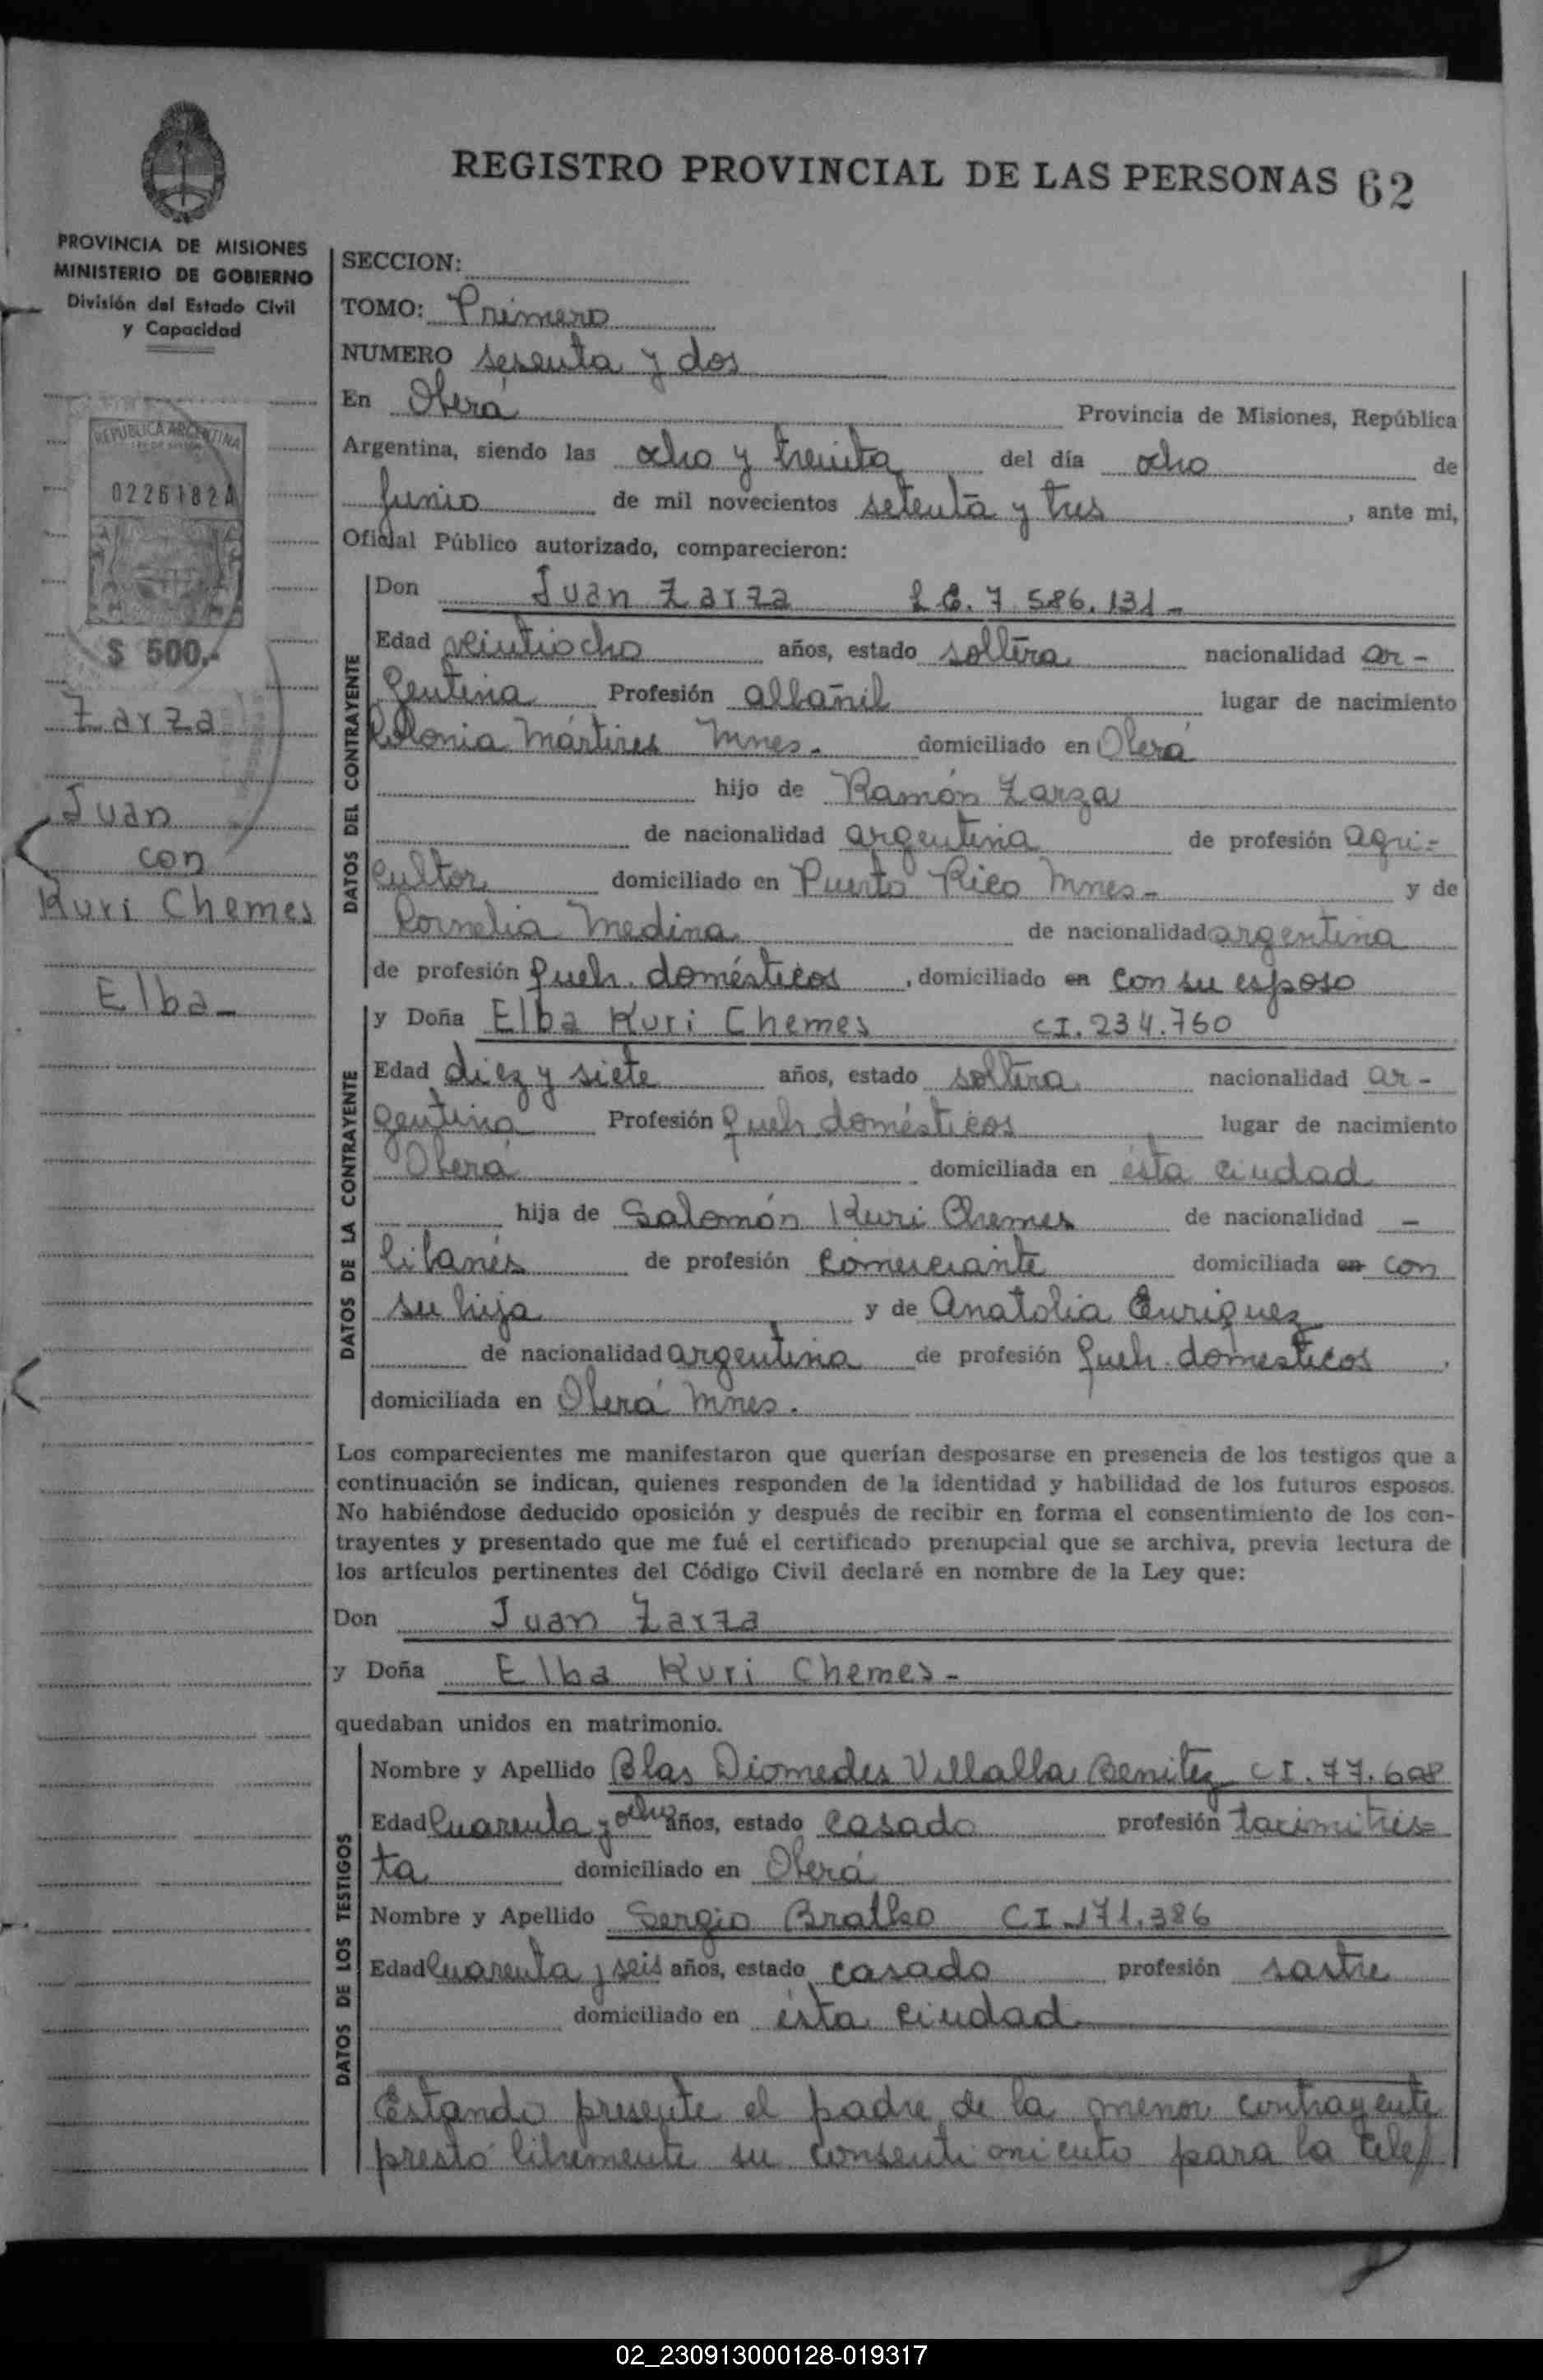 REGISTRO PROVINCIAL DE LAS PERSONAS 62
PROVINCIA DE MISIONES
MINISTERIO DE GOBIERNO
División del Estado Civil
y Capacidad
REPUBLICA ARGENTINA
02261824
$ 500,-
Zarza
Juan
con
Kuri Chemes
Elba-
SECCION:
TOMO: Primero
NUMERO sesenta y dos
En Oberá Provincia de Misiones, República
Argentina, siendo las ocho y treinta del día ocho de
Junio de mil novecientos setenta y tres, ante mi,
Oficial Público autorizado, comparecieron:
DATOS DEL CONTRAYENTE
Don Juan Zarza L E. 7 586.131-
Edad veintiocho años, estado soltera nacionalidad ar-
gentina Profesión albañil lugar de nacimiento
Colonia Mártires Mnes. domiciliado en Oberá
hijo de Ramón Zarza
de nacionalidad argentina de profesión agri-
cultor domiciliado en Puerto Rico Mnes- y de
Cornelia Medina de nacionalidad argentina
de profesión queh. domésticos, domiciliado en con su esposo
DATOS DE LA CONTRAYENTE
y Doña Elba Kuri Chemes CI. 234.760
Edad diez y siete años, estado soltera nacionalidad ar-
gentina Profesión queh. domésticos lugar de nacimiento
Oberá domiciliada en ésta ciudad
hija de Salomón Kuri Chemes de nacionalidad -
libanés de profesión comerciante domiciliada en con
su hija y de Anatolia Enriquez
de nacionalidad argentina de profesión queh. domesticos,
domiciliada en Oberá Mnes.
Los comparecientes me manifestaron que querían desposarse en presencia de los testigos que a
continuación se indican, quienes responden de la identidad y habilidad de los futuros esposos.
No habiéndose deducido oposición y después de recibir en forma el consentimiento de los con-
trayentes y presentado que me fué el certificado prenupcial que se archiva, previa lectura de
los artículos pertinentes del Código Civil declaré en nombre de la Ley que:
Don Juan Zarza
y Doña Elba Kuri Chemes-
quedaban unidos en matrimonio.
DATOS DE LOS TESTIGOS
Nombre y Apellido Blas Diomedes Villalba Benitez CI. 77.608
Edad Cuarenta y ocho años, estado casado profesión taximitris=
ta domiciliado en Oberá
Nombre y Apellido Sergio Bratko CI. 171.386
Edad Cuarenta y seis años, estado casado profesión sastre
domiciliado en ésta ciudad
Estando presente el padre de la menor contrayente
prestó libremente su consentimiento para la cele/
02_230913000128-019317